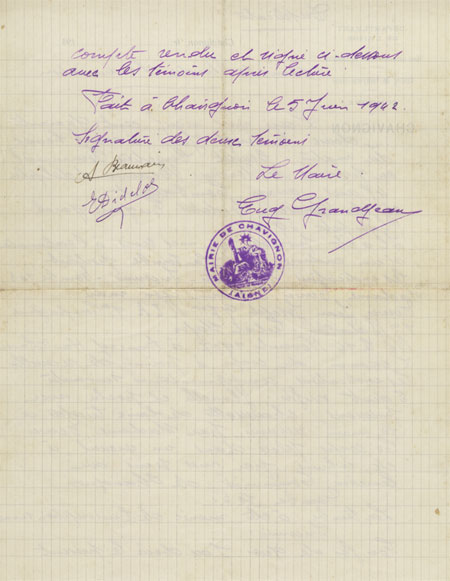 compte rendu et signé ci-dessous
avec les témoins après lecture.
Fait à Chavignon le 5 Juin 1942
Signature des deux témoins
Le Maire
Eug Grandjean
MAIRIE DE CHAVIGNON
(AISNE)